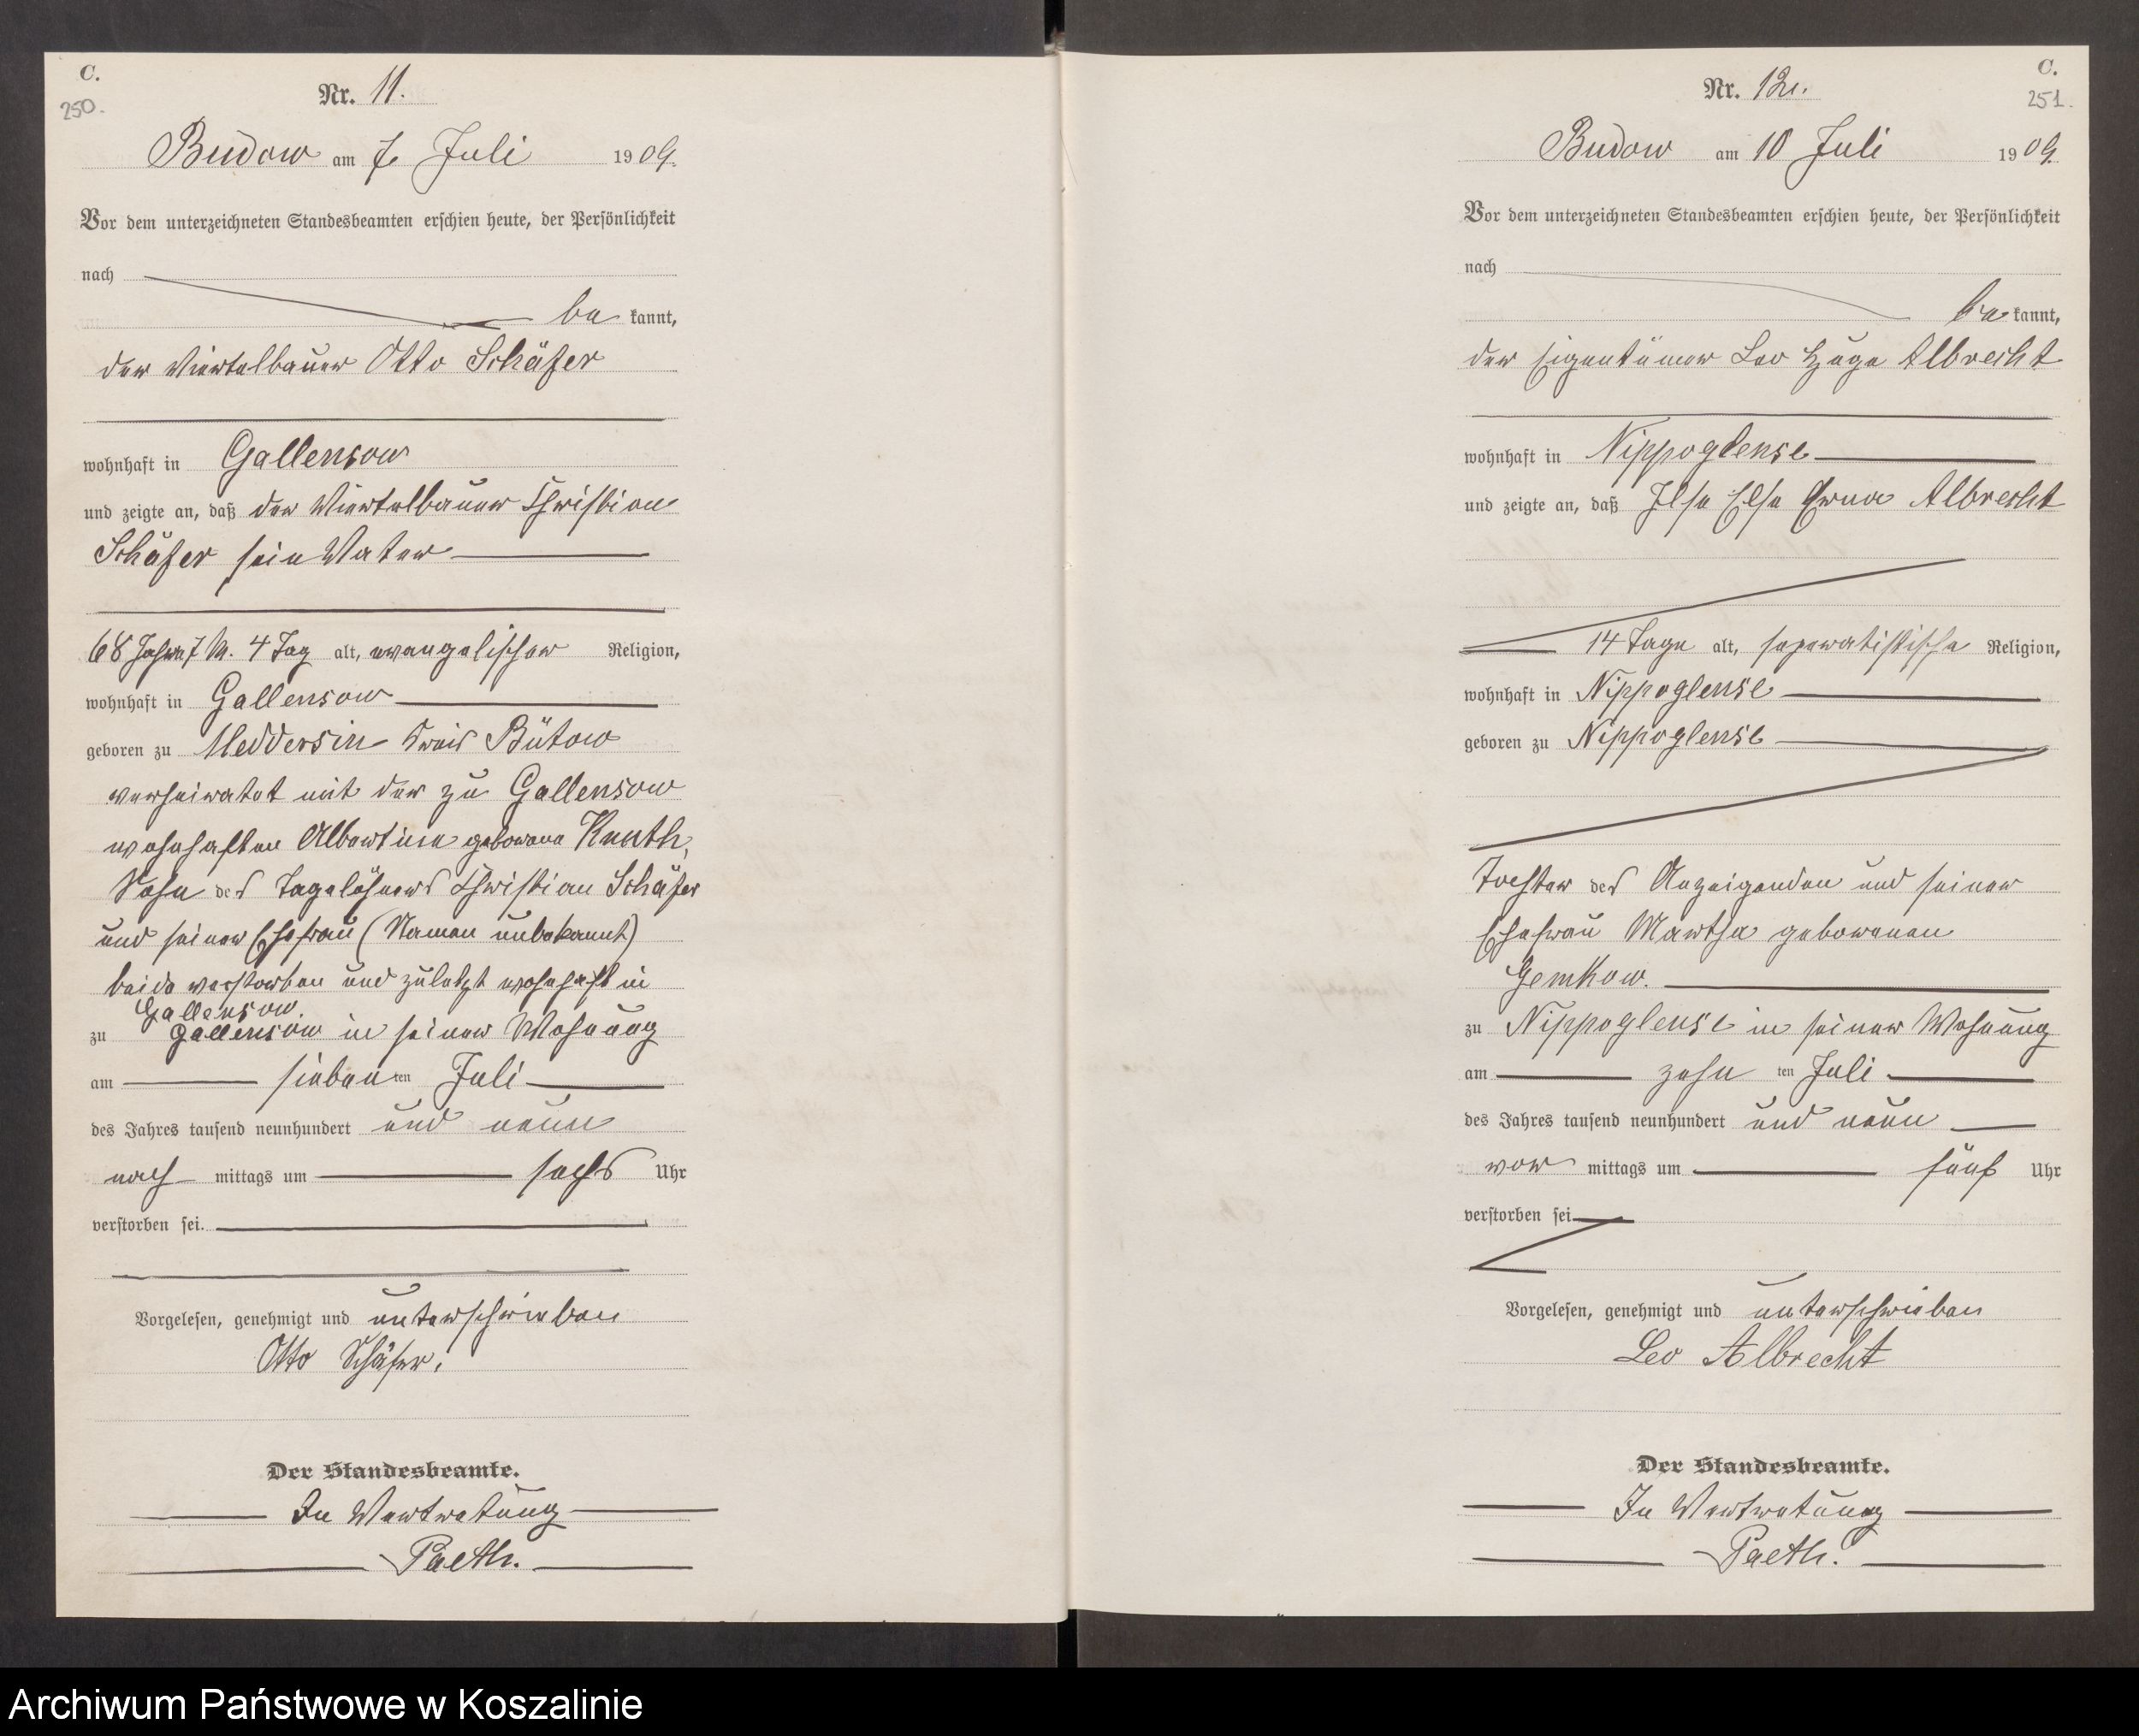 C.
250.
Nr. 11.
Budow am 7. Juli 1909.
Vor dem unterzeichneten Standesbeamten erschien heute, der Persönlichkeit
nach
be kannt,
der Viertelbauer Otto Schäfer
wohnhaft in Gallensow
und zeigte an, daß der Viertelbauer Christian
Schäfer sein Vater
68 Jahre 7 M. 4 Tag alt, evangelischer Religion,
wohnhaft in Gallensow
geboren zu Meddersin Kreis Bütow
verheiratet mit der zu Gallensow
wohnhaften Albertine geborene Knuth,
Sohn des Tagelöhners Christian Schäfer
und seiner Ehefrau (Namen unbekannt)
beide verstorben und zuletzt wohnhaft in
Gallensow.
zu Gallensow in seiner Wohnung
am sieben ten Juli
des Jahres tausend neunhundert und neun
nach mittags um sechs Uhr
verstorben sei.
Vorgelesen, genehmigt und unterschrieben
Otto Schäfer.
Der Standesbeamte.
In Vertretung
Paeth.
C.
251.
Nr. 12.
Budow am 10 Juli 1909.
Vor dem unterzeichneten Standesbeamten erschien heute, der Persönlichkeit
nach
be kannt,
der Eigentümer Leo Hugo Albrecht
wohnhaft in Nippoglense
und zeigte an, daß Ilse Else Erna Albrecht
14 Tage alt, separatistische Religion,
wohnhaft in Nippoglense
geboren zu Nippoglense
Tochter des Anzeigenden und seiner
Ehefrau Martha geborenen
Gemkow.
zu Nippoglense in seiner Wohnung
am zehn ten Juli
des Jahres tausend neunhundert und neun
vor mittags um fünf Uhr
verstorben sei
Vorgelesen, genehmigt und unterschrieben
Leo Albrecht
Der Standesbeamte.
In Vertretung
Paeth.
Archiwum Państwowe w Koszalinie